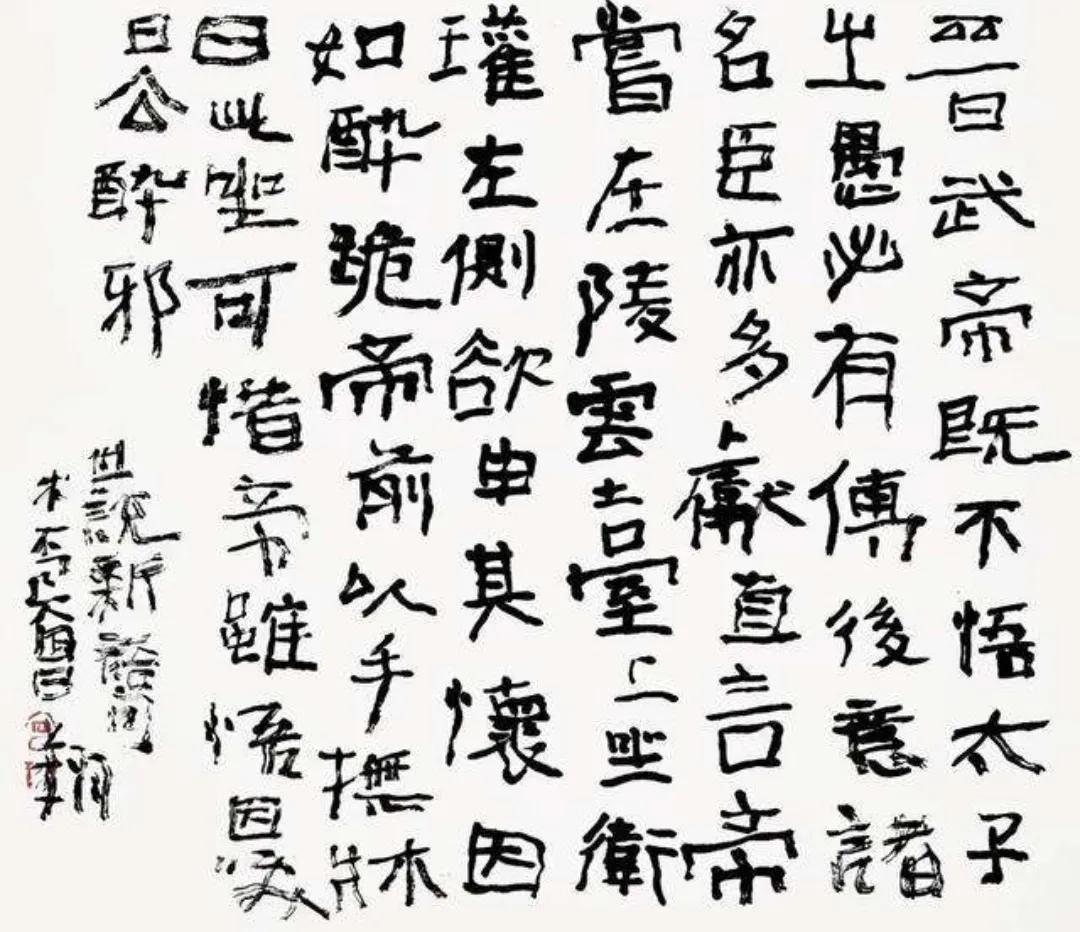 晉曰武帝既不悟太子
之愚必有傳後意諸
名臣亦多獻直言帝
嘗在陵雲臺上坐衛
瓘左側欲申其懷因
如醉跪帝前以手撫牀
曰此坐可惜帝雖悟因笑
曰公醉邪
世說新語